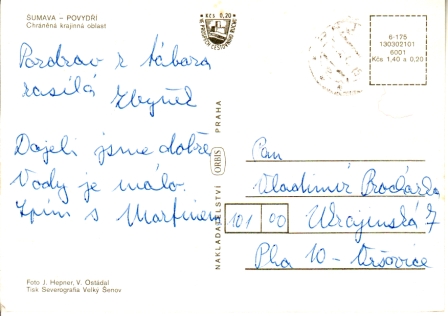 ŠUMAVA – POVYDŘÍ
Chráněná krajinná oblast
Kčs 0,20
6-175
130302101
6001
Kčs 1,40 a 0,20
Pozdrav z tábora
zasílá Zbyněk
Dojeli jsme dobře
Vody je málo.
Spím s Martinem
NAKLADATELSTVÍ ORBIS PRAHA
Pan
Vladimír
101 00 Ukrajinská 7
Pha 10 - Vršovice
Foto J. Hepner, V. Ostádal
Tisk Severografia Velký Šenov